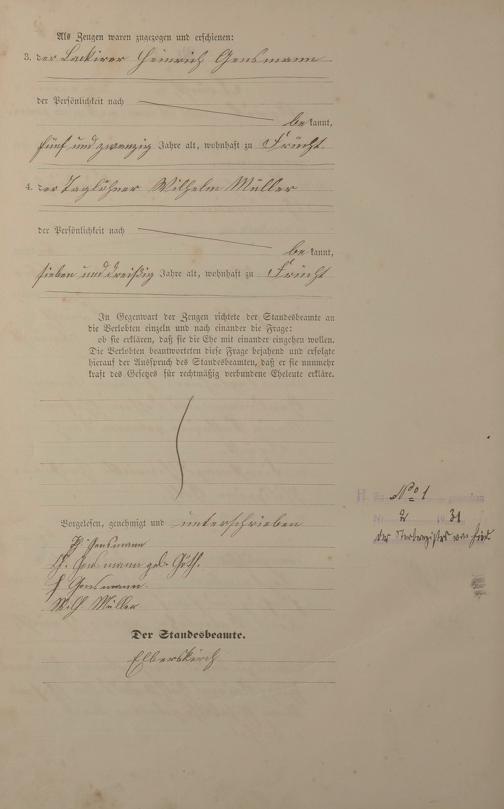 Als Zeugen waren zugezogen und erschienen:
3. der Lackirer Heinrich Gensmann
der Persönlichkeit nach
be kannt,
fünf und zwanzig Jahre alt, wohnhaft zu Frücht
4. der Taglöhner Wilhelm Müller
der Persönlichkeit nach
be kannt,
sieben und dreißig Jahre alt, wohnhaft zu Frücht
In Gegenwart der Zeugen richtete der Standesbeamte an
die Verlobten einzeln und nach einander die Frage:
ob sie erklären, daß sie die Ehe mit einander eingehen wollen.
Die Verlobten beantworteten diese Frage bejahend und erfolgte
hierauf der Ausspruch des Standesbeamten, daß er sie nunmehr
kraft des Gesetzes für rechtmäßig verbundene Eheleute erkläre.
H. No 1
Nr. 2 31
Vorgelesen, genehmigt und unterschrieben
Gensmann
Gensmann geb. Güth.
H Gensmann.
Wilh Müller
Der Standesbeamte.
Elberskirch